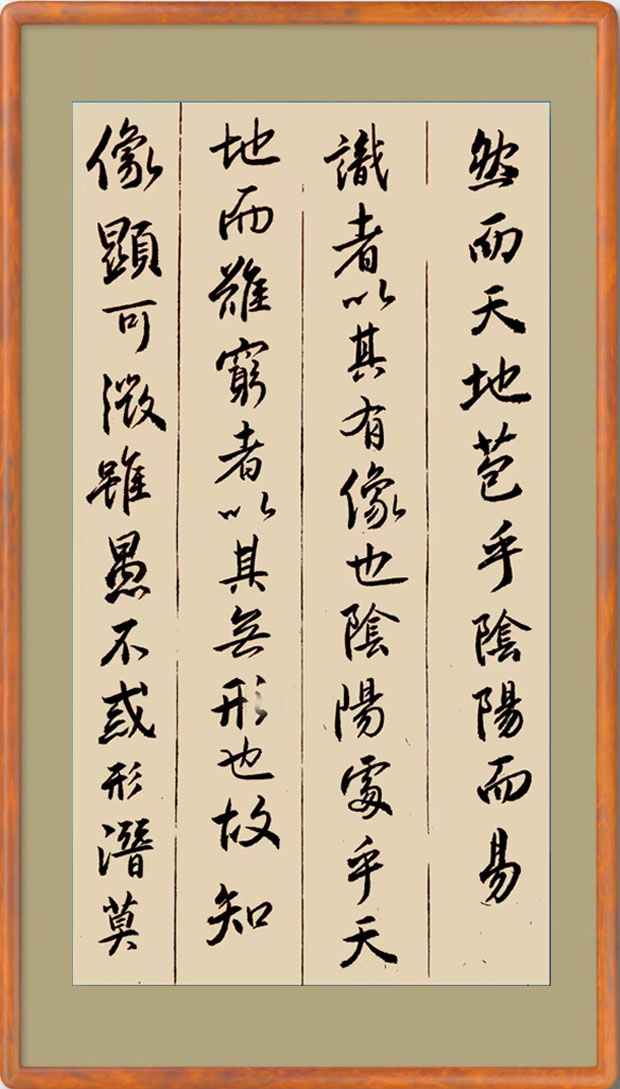 然而天地苞乎陰陽而易
識者以其有像也陰陽處乎天
地而難窮者以其無形也故知
像顯可徵雖愚不惑形潛莫